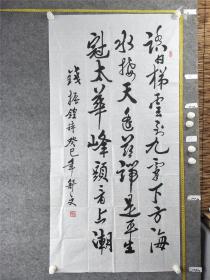 梯雲到九霄下方海
水接天遥茲游是平生
冠太華峰頭看上潮
錢振鍠詩癸巳年舒文